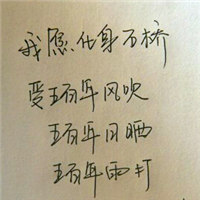 我愿化身石桥
受五百年风吹
五百年日晒
五百年雨打